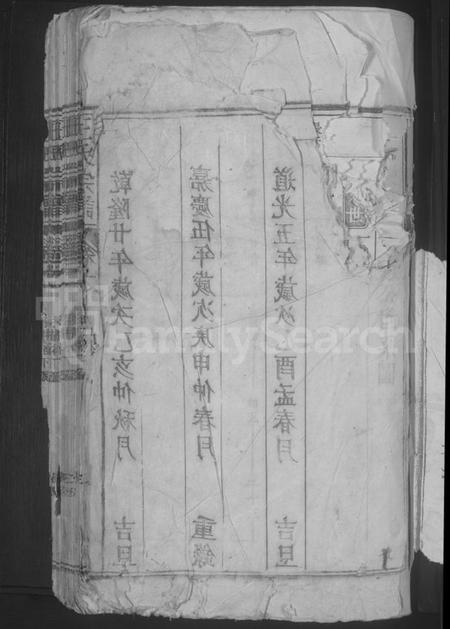 乾隆廿年歲次乙亥仲秋月 吉旦
嘉慶伍年歲次庚申仲春月 重錄
道光五年歲次 酉孟春月 吉旦
FamilySearch